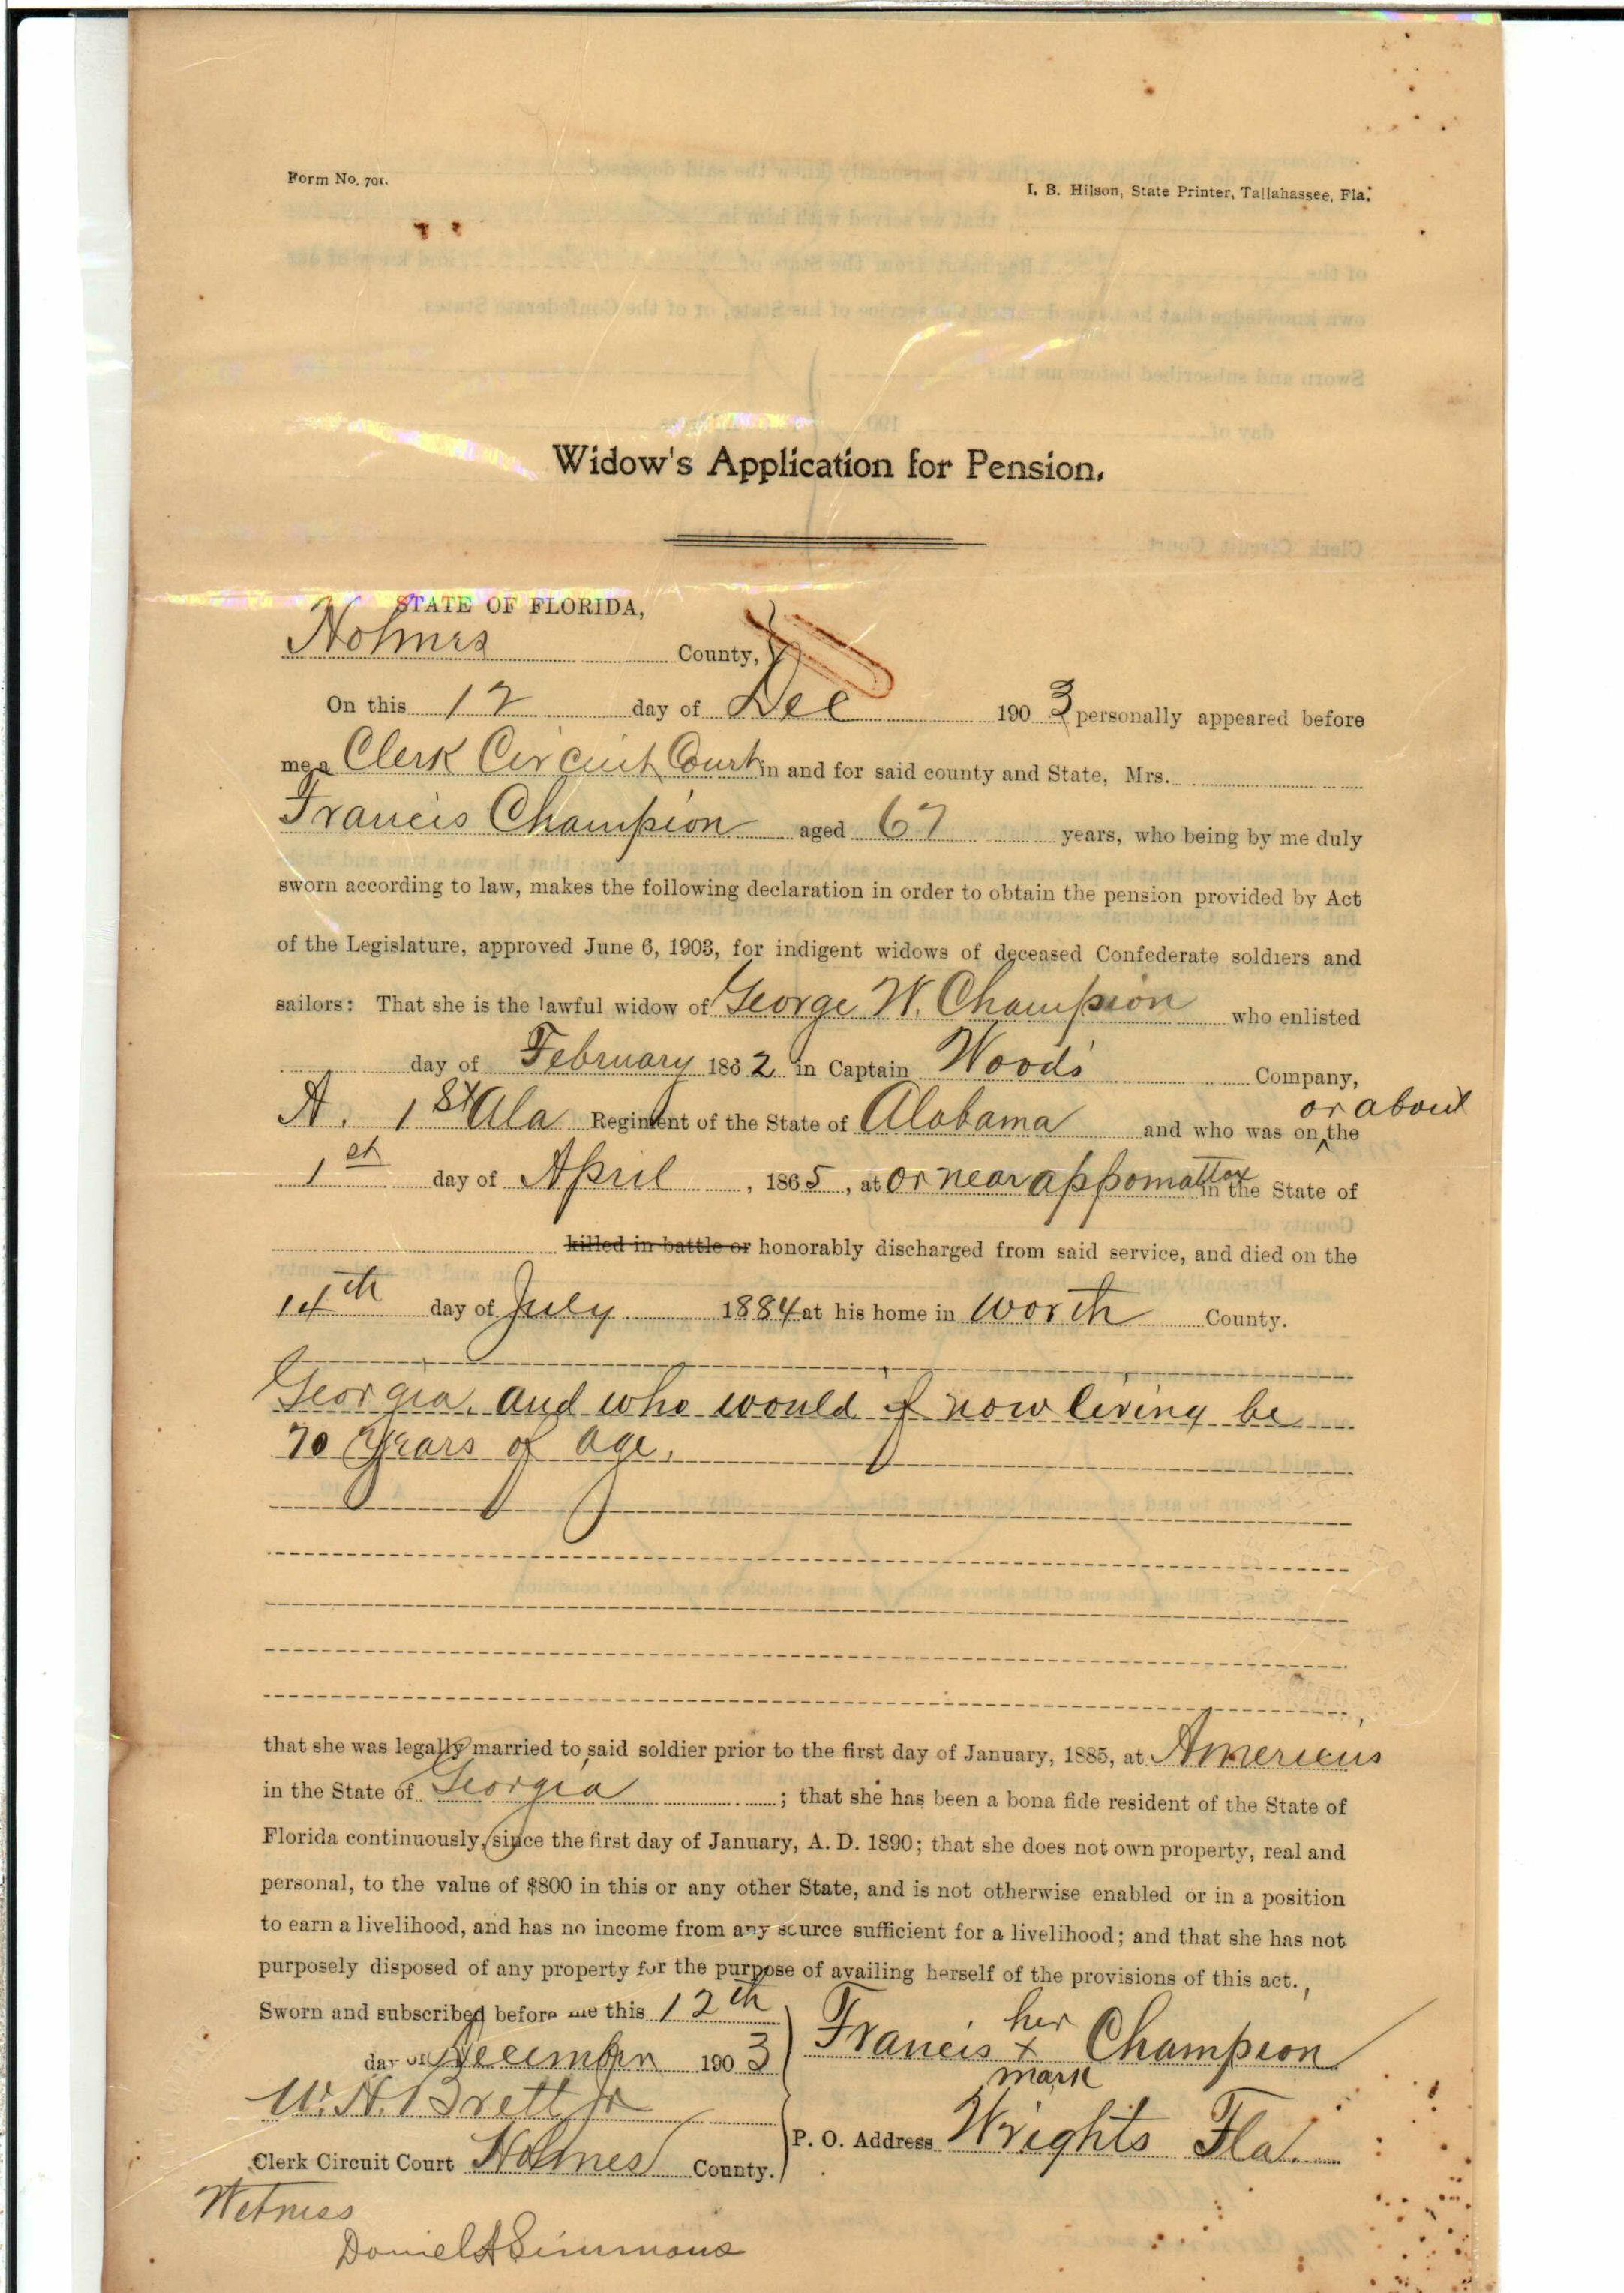 Form No. 701.
I. B. Hilson, State Printer, Tallahassee, Fla.
Widow's Application for Pension.
STATE OF FLORIDA,
Holmes County,
On this 12 day of Dec 1903 personally appeared before
me a Clerk Circuit Court in and for said county and State, Mrs.
Francis Champion aged 67 years, who being by me duly
sworn according to law, makes the following declaration in order to obtain the pension provided by Act
of the Legislature, approved June 6, 1903, for indigent widows of deceased Confederate soldiers and
sailors: That she is the lawful widow of George W. Champion who enlisted
day of February 1862 in Captain Woods' Company,
A. 1st Ala Regiment of the State of Alabama and who was on or about the
1st day of April, 1865, at or near appomattox in the State of
killed in battle or honorably discharged from said service, and died on the
14th day of July 1884 at his home in Worth County.
Georgia, and who would if now living be
70 years of age.
that she was legally married to said soldier prior to the first day of January, 1885, at Americus
in the State of Georgia; that she has been a bona fide resident of the State of
Florida continuously, since the first day of January, A. D. 1890; that she does not own property, real and
personal, to the value of $800 in this or any other State, and is not otherwise enabled or in a position
to earn a livelihood, and has no income from any source sufficient for a livelihood; and that she has not
purposely disposed of any property for the purpose of availing herself of the provisions of this act.,
Sworn and subscribed before me this 12th
day of December 1903
W. H. Brett Jr
Clerk Circuit Court Holmes County.
Francis her x mark Champion
P. O. Address Wrights Fla.
Witness
Daniel A Simmons